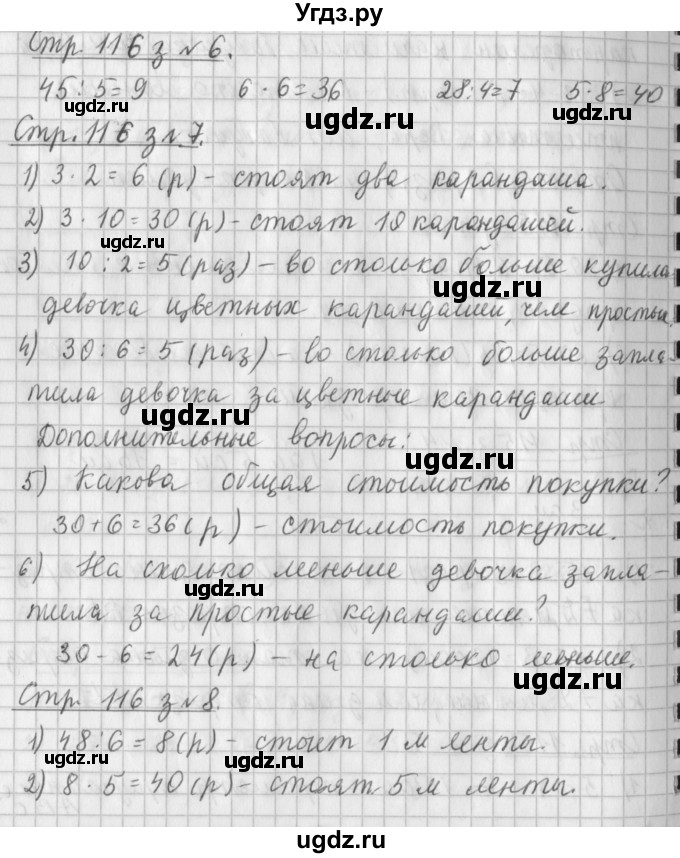 Угдз.ру
Стр. 116 з №6.
45:5=9 6·6=36 28:4=7 5·8=40
ugdz.ru ugdz.ru ugdz.ru
Стр. 116 з №7.
1) 3·2=6(р) - стоят два карандаша.
ugdz.ru
2) 3·10=30(р) - стоят 10 карандашей.
ugdz.ru
3) 10:2=5(раз) - во столько больше купила
ugdz.ru
девочка цветных карандаши, чем простых.
4) 30:6=5(раз) - во столько больше запла-
тила девочка за цветные карандаши
ugdz.ru
Дополнительные вопросы:
ugdz.ru
5) Какова общая стоимость покупки?
30+6=36(р) - стоимость покупки.
ugdz.ru ugdz.ru
6) На сколько меньше девочка запла-
тила за простые карандаши?
30-6=24(р) - на столько меньше.
ugdz.ru
Стр. 116 з №8.
ugdz.ru
1) 48:6=8(р) - стоит 1 м ленты.
ugdz.ru
2) 8·5=40(р) - стоят 5 м ленты.
ugdz.ru
ugdz.ru